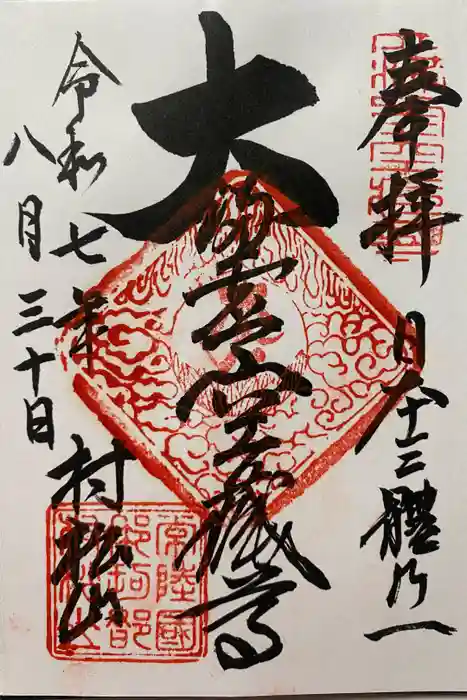 奉拝
日本十三體乃一
大満虚空蔵尊
村松山
令和七年
八月三十日
常陸國
那珂郡